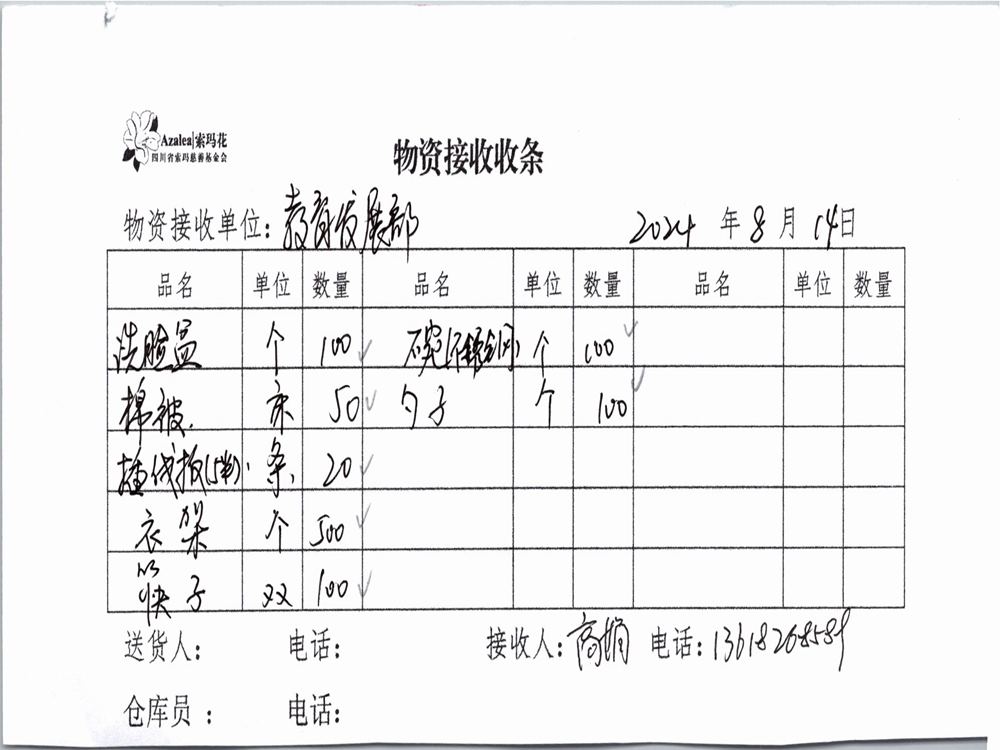 Azalea|索玛花
四川省索玛慈善基金会
物资接收收条
物资接收单位：教育发展部 2024 年 8 月 14日
品名 单位 数量 品名 单位 数量 品名 单位 数量
洗脸盆 个 100 个 100
棉被 床 50 勺子 个 100
条 20
衣架 个 500
筷子 双 100
送货人： 电话： 接收人：高娟 电话：13618268589
仓库员 ： 电话：